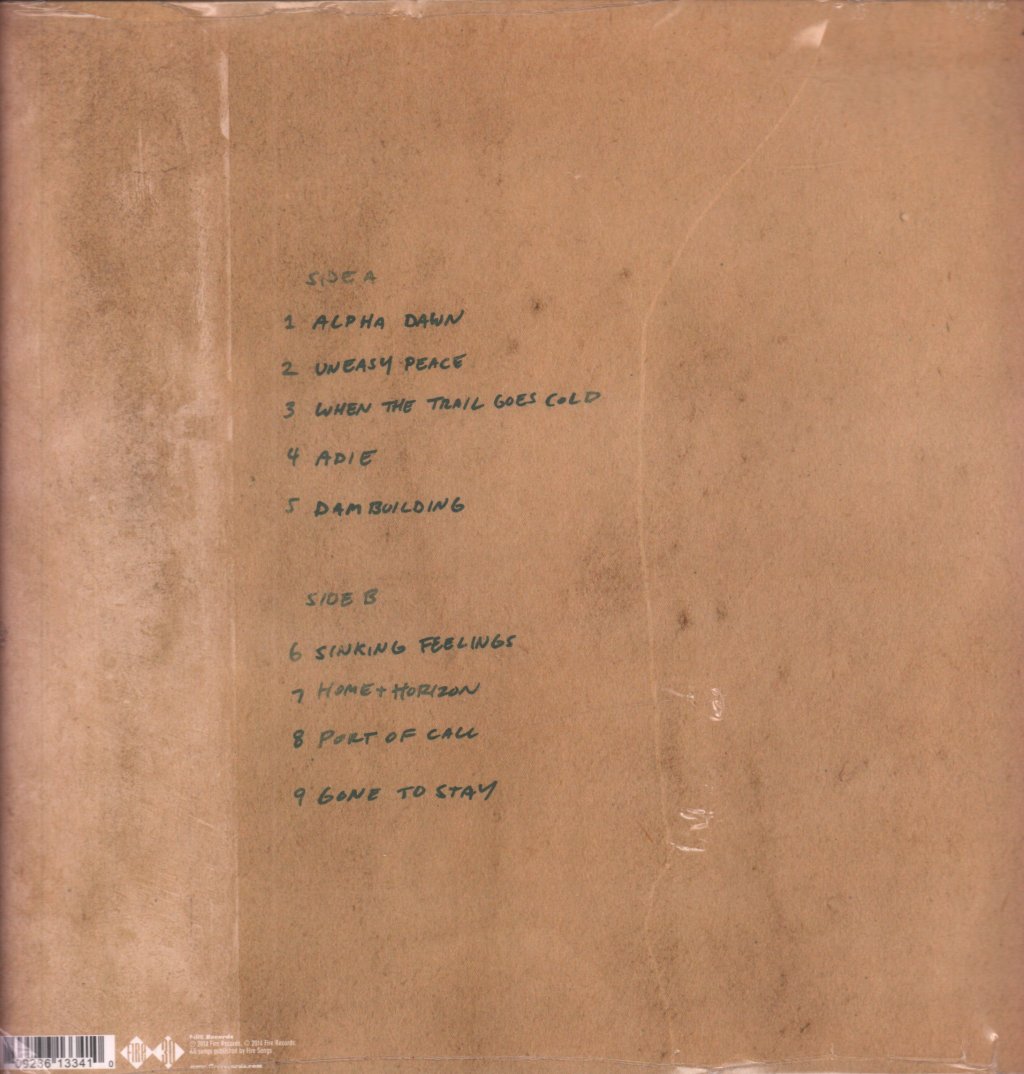 SIDE A
1 ALPHA DAWN
2 UNEASY PEACE
3 WHEN THE TRAIL GOES COLD
4 ADIE
5 DAM BUILDING
SIDE B
6 SINKING FEELINGS
7 HOME + HORIZON
8 PORT OF CALL
9 GONE TO STAY
09236 13341 0
FIRE 30
Fire Records
℗ 2014 Fire Records. © 2014 Fire Records.
All songs published by Fire Songs